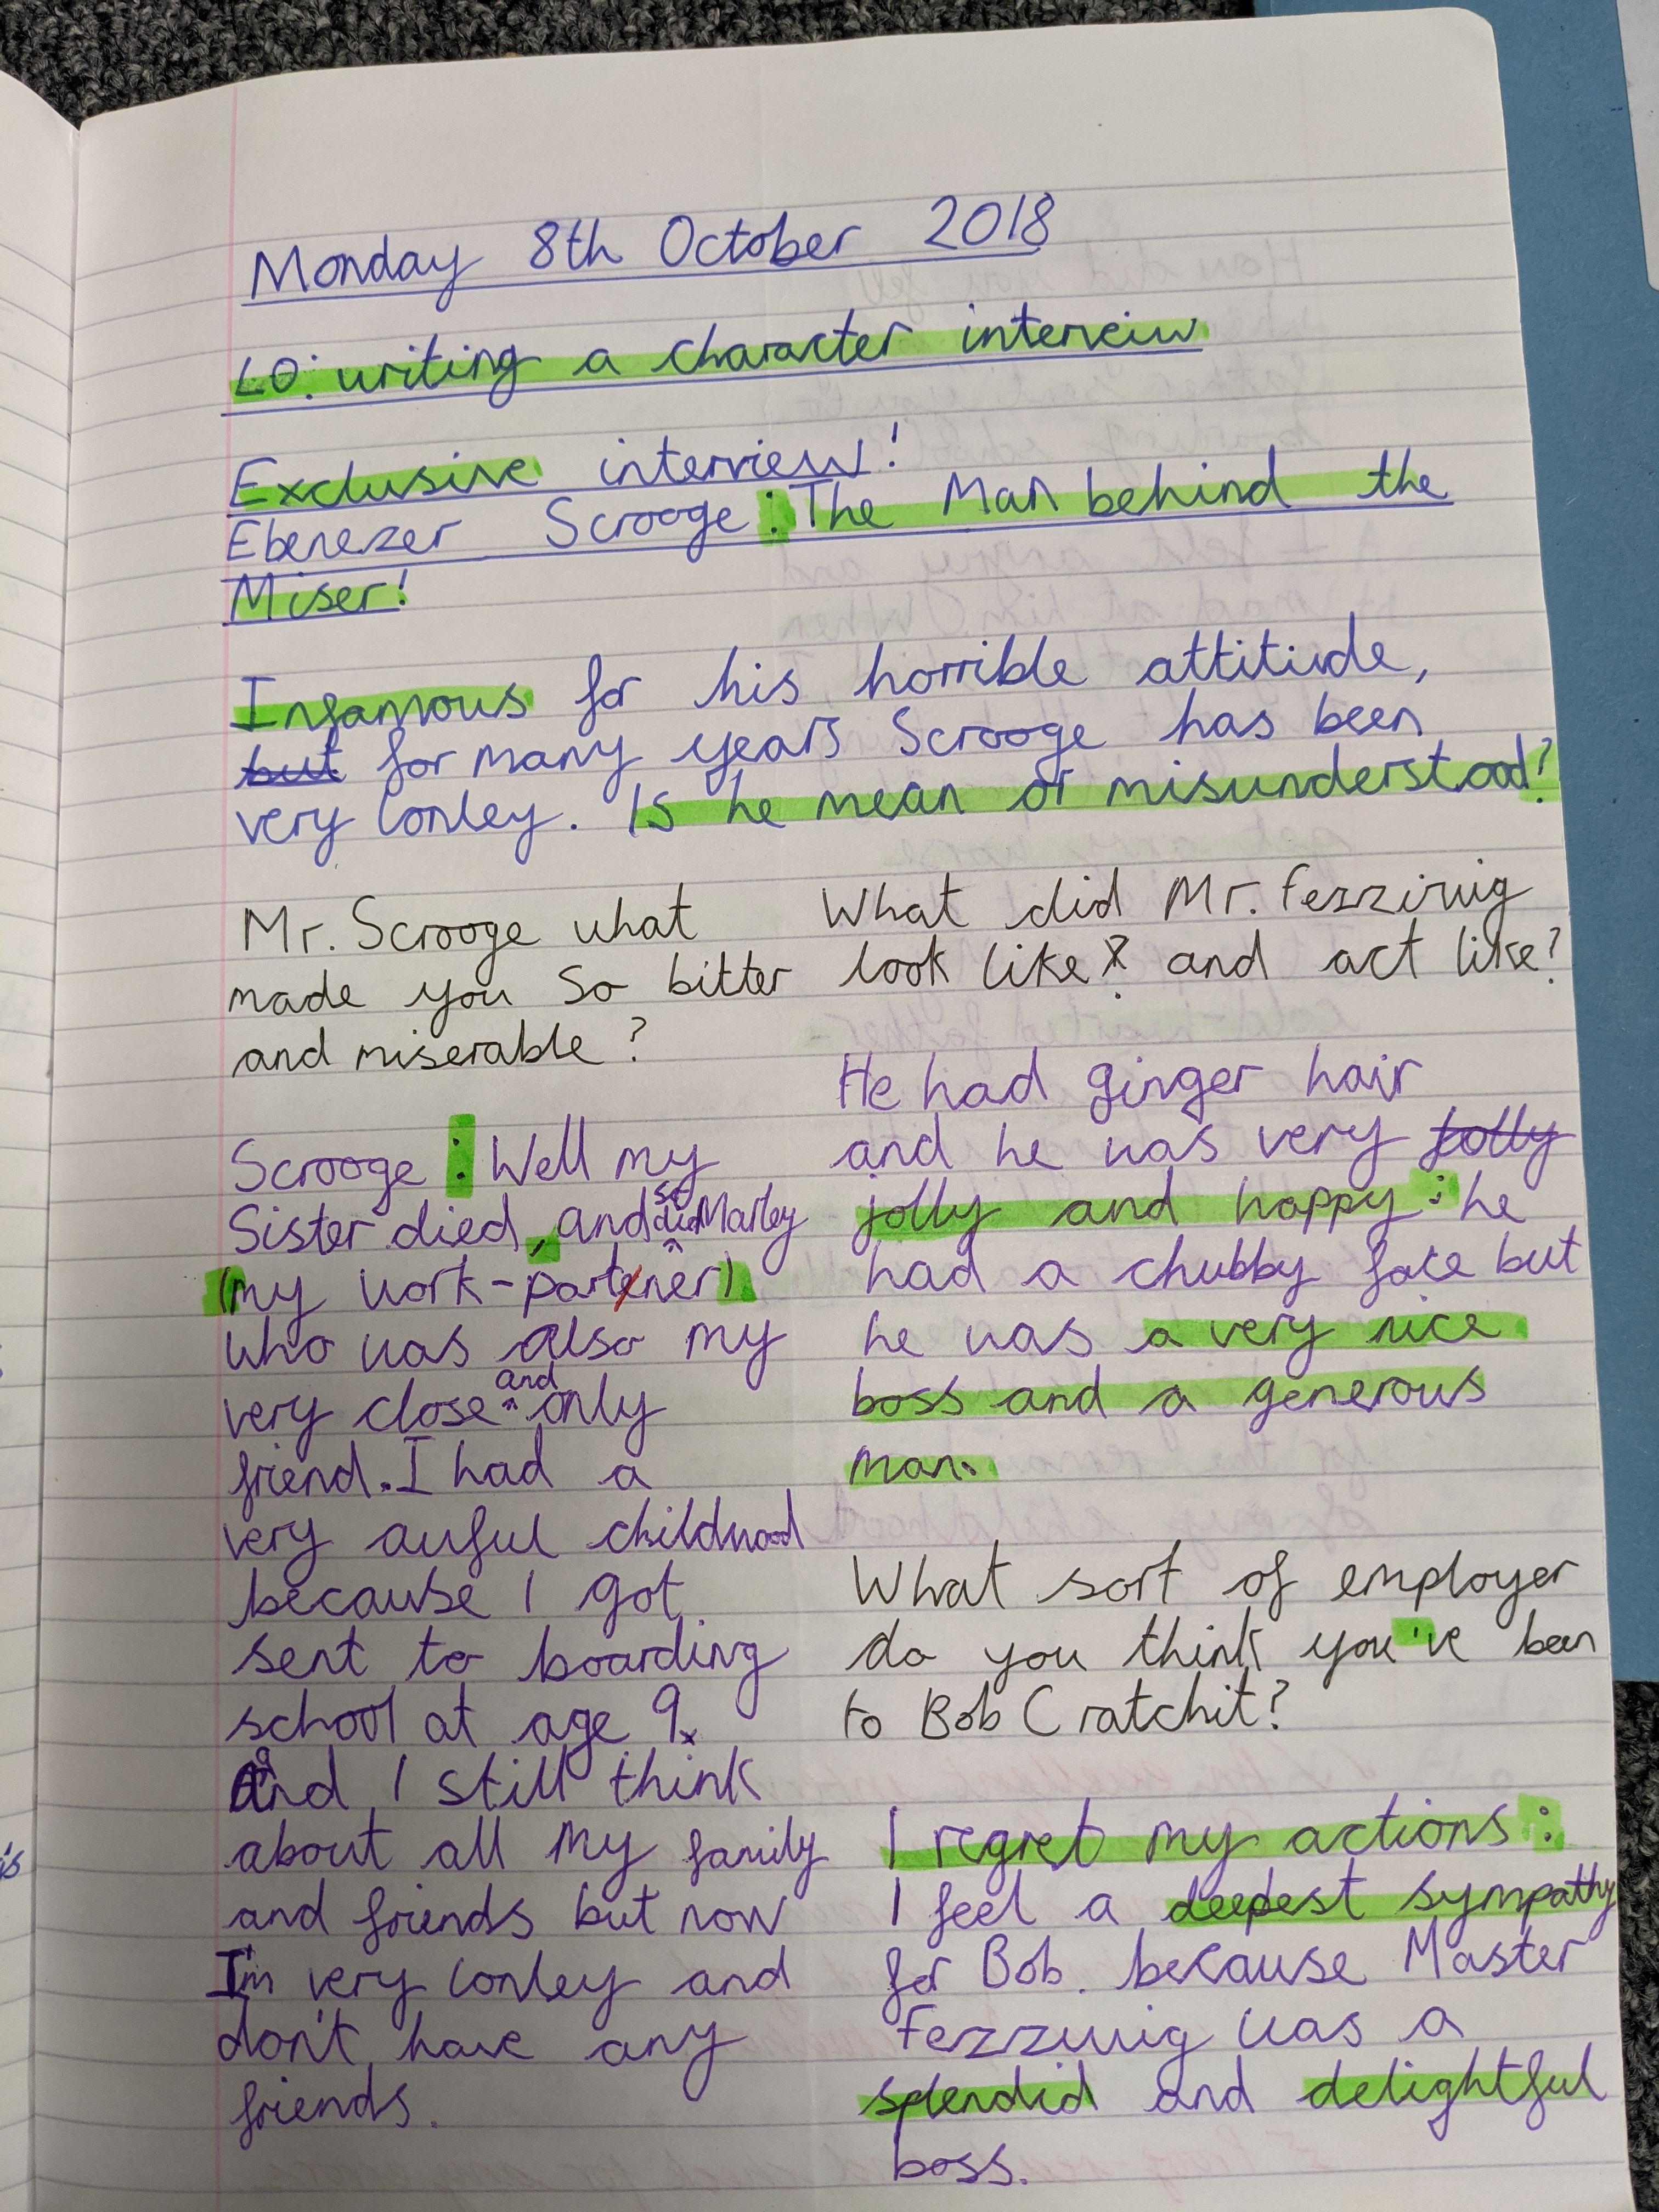 Monday 8th October 2018
LO: writing a character interveiw
Exclusive interview!
Ebenezer Scrooge: The Man behind the
Miser!
Infamous for his horrible attitude,
but for many years Scrooge has been
very lonley. Is he mean or misunderstood?
Mr. Scrooge what
made you so bitter
and miserable?
Scrooge: Well my
Sister died, and so did Marley
(my work-partener)
who was also my
very close and only
friend. I had a
very awful childhood
because I got
sent to boarding
school at age 9.
and I still think
about all my family
and friends but now
I'm very lonley and
don't have any
friends.
What did Mr. Fezziwig
look like? and act like?
He had ginger hair
and he was very jolly
jolly and happy; he
had a chubby face but
he was a very nice
boss and a generous
man.
What sort of employer
do you think you've been
to Bob Cratchit?
I regret my actions:
I feel a deepest sympathy
for Bob. because Master
Fezziwig was a
splendid and delightful
boss.